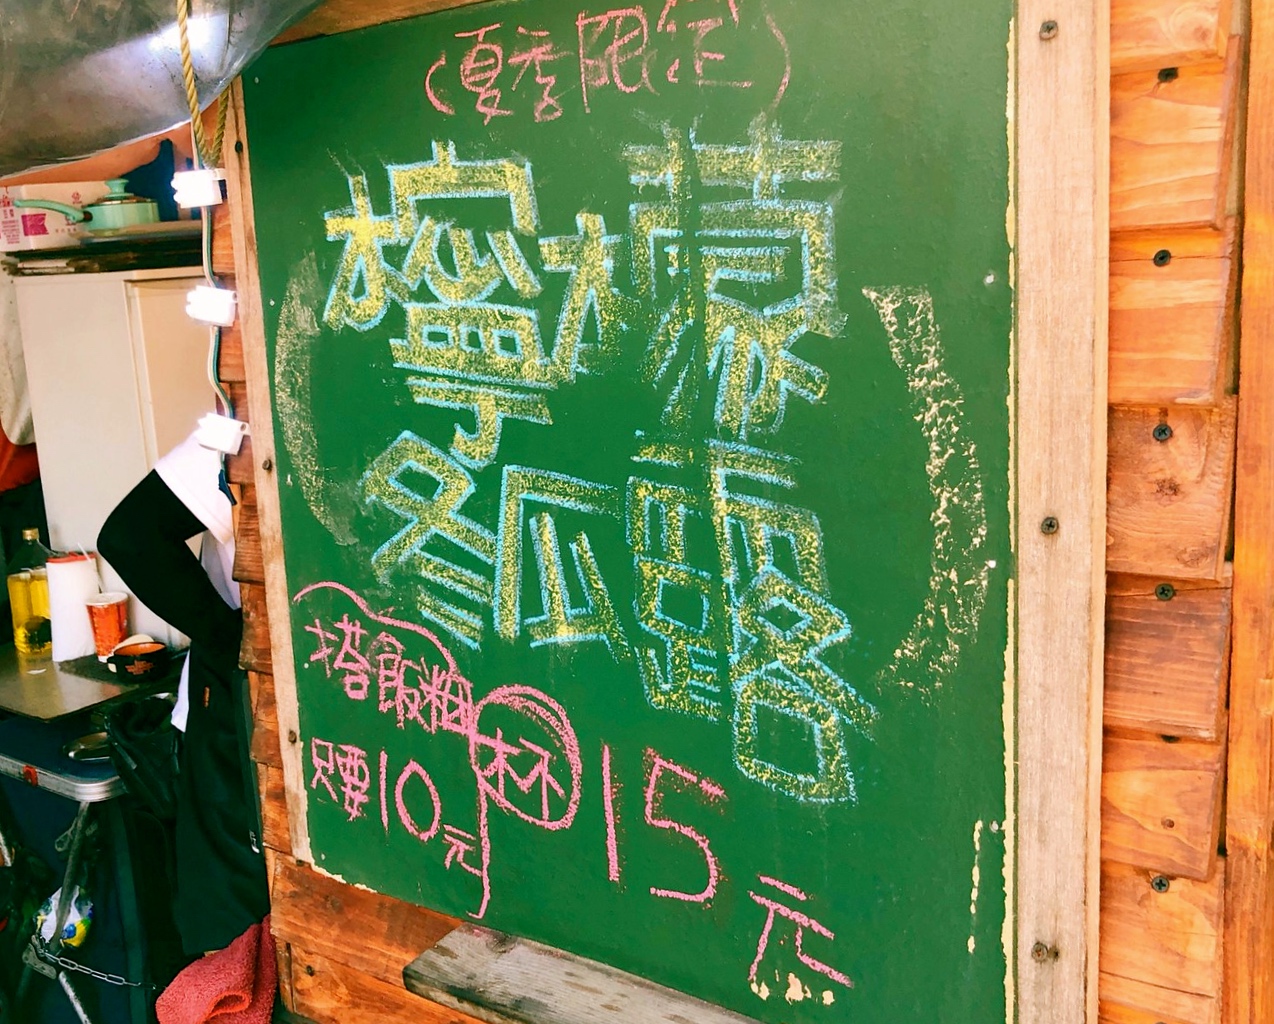 (夏季限定)
檸檬
冬瓜露
搭飯糰
只要10元
杯 15元